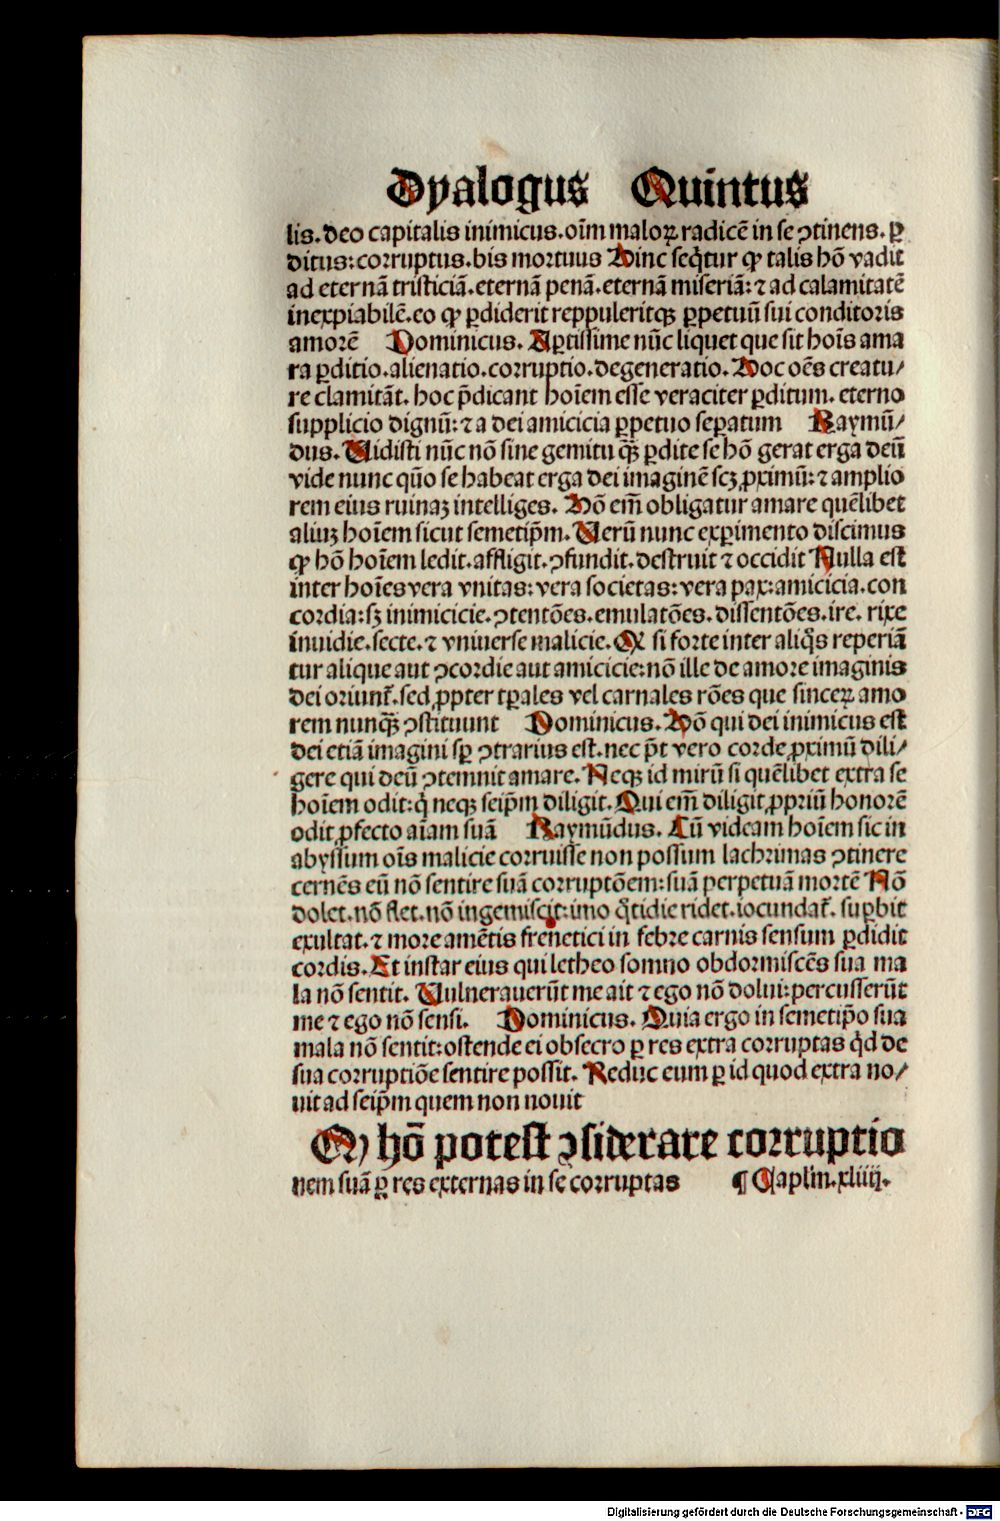 Dyalogus Quintus
lis. deo capitalis inimicus. oīm maloꝝ radicē in se ꝯtinens. ꝑ
ditus: corruptus. bis mortuus Hinc seq̄tur ꝙ talis hō vadit
ad eternā tristiciā. eternā penā. eternā miseriā: ⁊ ad calamitatē
inexpiabilē. eo ꝙ ꝑdiderit reppuleritqꝫ ꝑpetuū sui conditoris
amorē Dominicus. Aꝑtissime nūc liquet que sit hoīs ama
ra ꝑditio. alienatio. corruptio. degeneratio. Hoc oēs creatu/
re clamitāt. hoc p̄dicant hoīem esse veraciter ꝑditum. eterno
supplicio dignū: ⁊ a dei amicicia ꝑpetuo seꝑatum Raymū/
dus. Uidisti nūc nō sine gemitu q̄ꝫ ꝑdite se hō gerat erga deū
vide nunc qūo se habeat erga dei imaginē scꝫ ꝓximū: ⁊ amplio
rem eius ruinaꝫ intelliges. Hō em̄ obligatur amare quēlibet
aliuꝫ hoīem sicut semetip̄m. Uerū nunc exꝑimento discimus
ꝙ hō hoīem ledit. affligit. ꝯfundit. destruit ⁊ occidit Nulla est
inter hoīes vera vnitas: vera societas: vera pax: amicicia. con
cordia: sꝫ inimicicie. ꝯtentōes. emulatōes. dissentōes. ire. rixe
inuidie. secte. ⁊ vniuerse malicie. Et si forte inter aliq̄s reperiā
tur alique aut ꝯcordie aut amicicie: nō ille de amore imaginis
dei oriunt̄. sed ꝓpter tꝑales vel carnales rōes que sinceꝝ amo
rem nunq̄ꝫ ꝯstituunt Dominicus. Hō qui dei inimicus est
dei etiā imagini sꝑ ꝯtrarius est. nec pt̄ vero corde ꝓximū dili/
gere qui deū ꝯtemnit amare. Neqꝫ id mirū si quēlibet extra se
hoīem odit: q̄ neqꝫ seip̄m diligit. Qui em̄ diligit ꝓpriū honorē
odit ꝓfecto aīam suā Raymūdus. Cū videam hoīem sic in
abyssum oīs malicie corruisse non possum lachrimas ꝯtinere
cernēs eū nō sentire suā corruptōem: suā perpetuā mortē Nō
dolet. nō flet. nō ingemiscit: imo q̄tidie ridet. iocundat̄. suꝑbit
exultat. ⁊ more amētis frenetici in febre carnis sensum ꝑdidit
cordis. Et instar eius qui letheo somno obdormiscēs sua ma
la nō sentit. Uulnerauerūt me ait ⁊ ego nō dolui: percusserūt
me ⁊ ego nō sensi. Dominicus. Quia ergo in semetip̄o sua
mala nō sentit: ostende ei obsecro ꝑ res extra corruptas q̄d de
sua corruptiōe sentire possit. Reduc eum ꝑ id quod extra no/
uit ad seip̄m quem non nouit
Ꝙ hō potest ꝯsiderare corruptio
nem suā ꝑ res externas in se corruptas ¶ Caplm̄. xliiij.
Digitalisierung gefördert durch die Deutsche Forschungsgemeinschaft - DFG